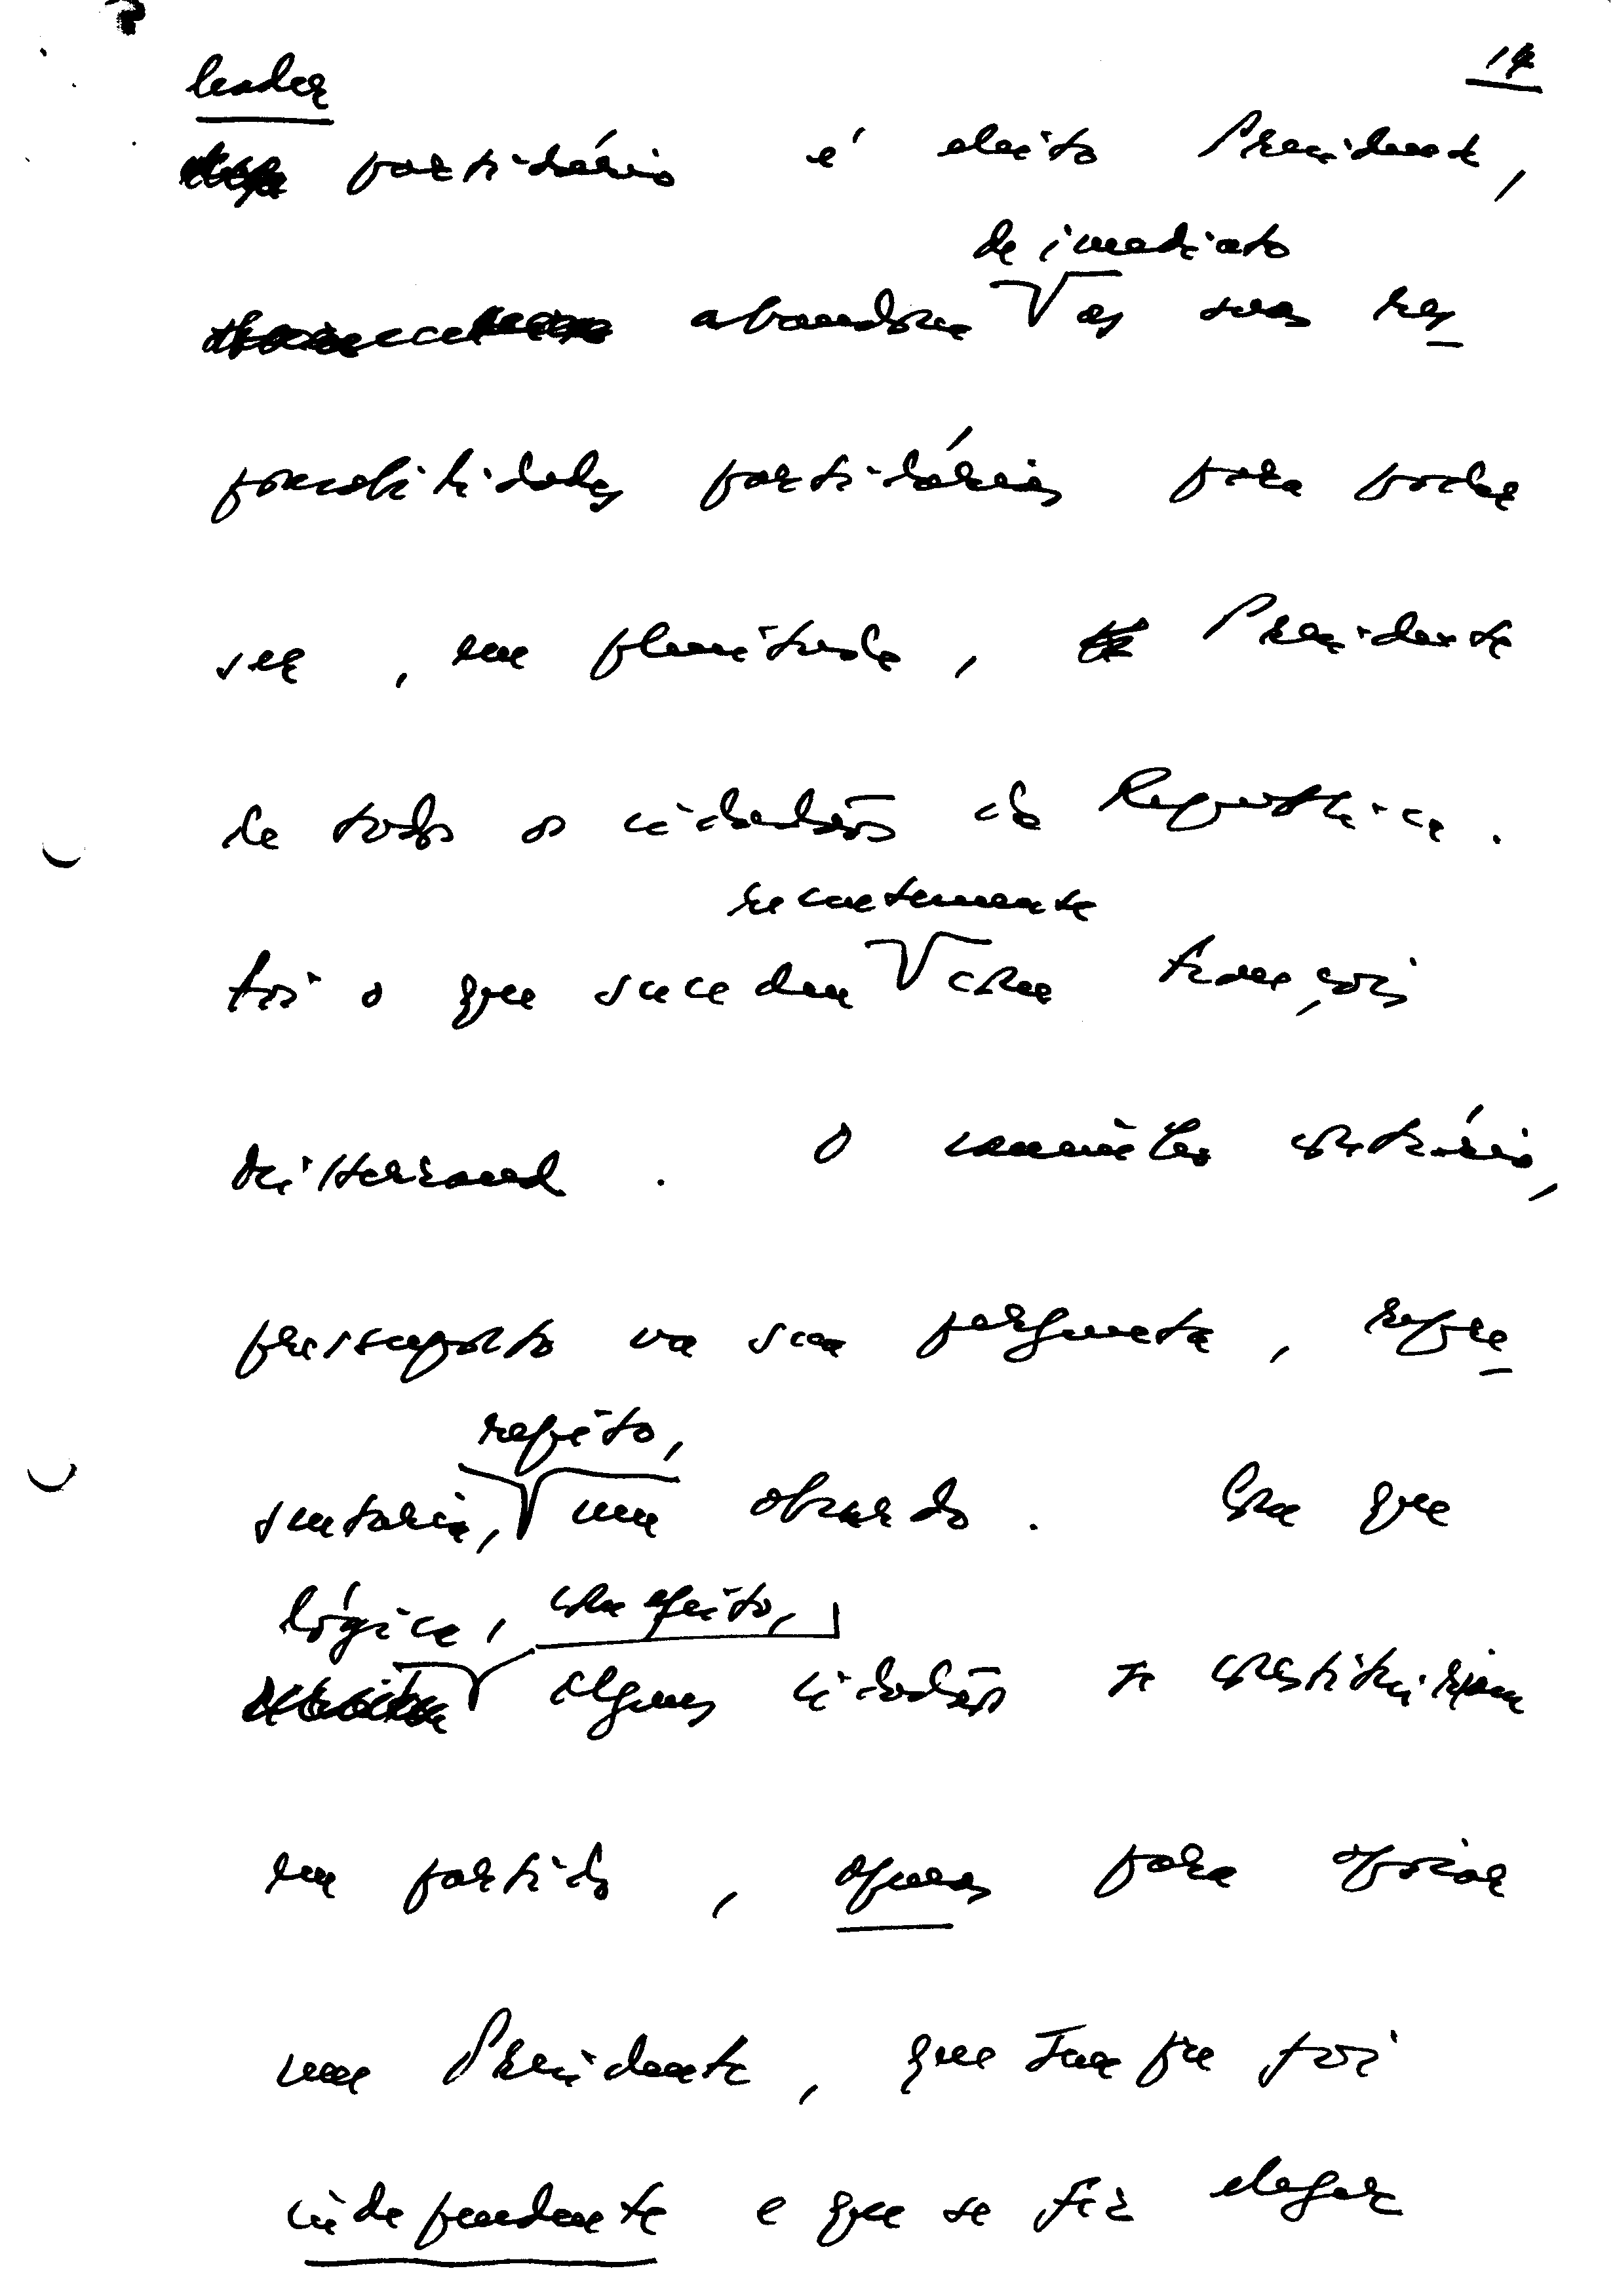 14
leader
partidário é eleito Presidente,
de imediato
abandona as suas res
ponsabilidades partidárias para poder
ser, em plenitude, Presidente
de todos os cidadãos da República.
recentemente
Foi o que sucedeu com François
Mitterrand. O caminho contrário,
pressuposto na sua pergunta, repre
repito,
sentaria, um absurdo. Com que
lógica, com efeito,
alguns cidadãos se constituiriam
em partido, apenas para apoiar
um Presidente, que sempre foi
independente e que se fez eleger